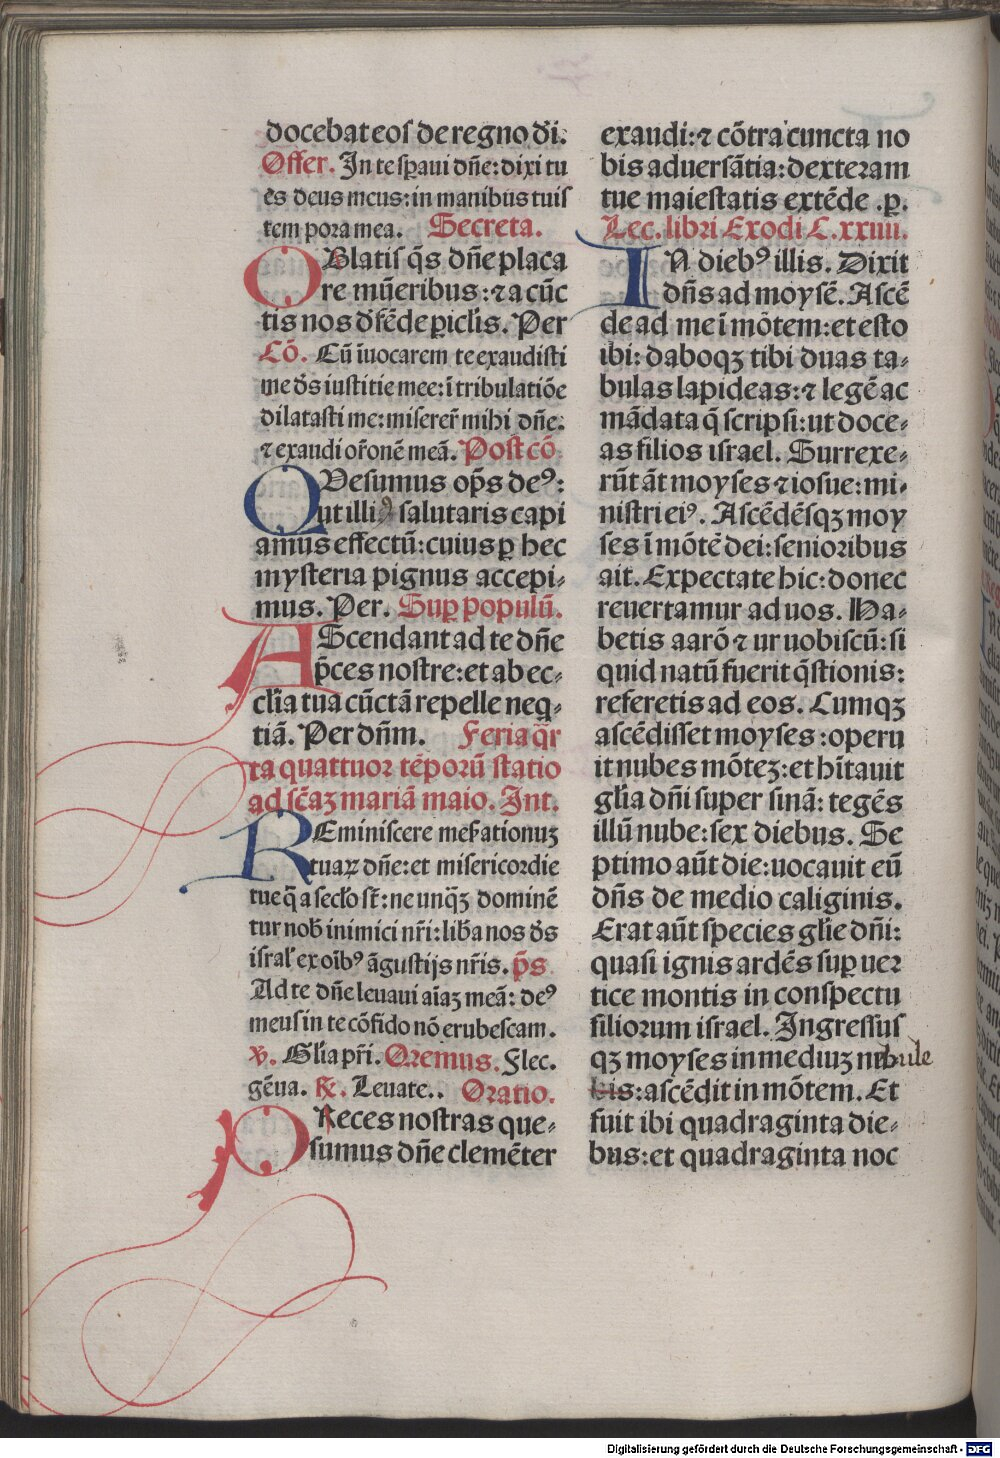 docebat eos de regno dī.
Offer. In te sꝑaui dn̄e: dixi tu
es deus meus: in manibus tuis
tempora mea. Secreta.
OBlatis q̄s dn̄e placa
re mūeribus: ⁊ a cūc
tis nos dēfēde ꝑiclīs. Per
Cō. Cū īuocarem te exaudisti
me dē̄s iustitie mee: ī tribulatiōe
dilatasti me: miserer̄ mihi dn̄e:
⁊ exaudi or̄onē meā. Post cō
QVesumus op̄s deꝰ:
ut illiꝰ salutaris capi
amus effectū: cuius ꝑ hec
mysteria pignus accepi-
mus. Per. Suꝑ populū.
AScendant ad te dn̄e
p̄ces nostre: et ab ec-
clīa tua cūctā repelle neq̄-
tiā. Per dn̄m. Feria q̄r
ta quattuor tēporū statio
ad sc̄aꝫ mariā maio. Int.
REminiscere mes̄ationuꝫ
tuaꝝ dn̄e: et misericordie
tue q̄ a secl̄o st̄: ne unq̄ꝫ dominē
tur nob̄ inimici nr̄i: lib̄a nos dē̄s
isral̄ ex oīb̄ꝰ āgustijs nr̄is. p̄s
Ad te dn̄e leuaui aīaꝫ meā: deꝰ
meus in te cōfido nō erubescam.
℣. Gl̄ia pr̄i. Oremus. Flec.
gēua. ℟. Leuate.. Oratio.
PReces nostras que-
sumus dn̄e clemēter
exaudi: ⁊ cōtra cuncta no
bis aduersātia: dexteram
tue maiestatis extēde .ꝑ.
Lec. libri Exodi C.xxiiii.
IN diebꝰ illis. Dixit
dn̄s ad moysē. Ascē
de ad me ī mōtem: et esto
ibi: daboqꝫ tibi duas ta-
bulas lapideas: ⁊ legē ac
mādata q̄ scripsi: ut doce-
as filios israel. Surrexe-
rūt āt moyses ⁊ iosue: mi-
nistri eiꝰ. Ascēdēsqꝫ moy
ses ī mōtē dei: senioribus
ait. Expectate hic: donec
reuertamur ad uos. Ha-
betis aarō ⁊ ur uobiscū: si
quid natū fuerit q̄stionis:
referetis ad eos. Cumqꝫ
ascēdisset moyses: operu
it nubes mōteꝫ: et hītauit
gl̄ia dn̄i super sinā: tegēs
illū nube: sex diebus. Se
ptimo aūt die: uocauit eū
dn̄s de medio caliginis.
Erat aūt species gl̄ie dn̄i:
quasi ignis ardēs suꝑ uer
tice montis in conspectu
filiorum israel. Ingressus
qꝫ moyses in mediuꝫ nebule
bis: ascēdit in mōtem. Et
fuit ibi quadraginta die-
bus: et quadraginta noc
Digitalisierung gefördert durch die Deutsche Forschungsgemeinschaft - DFG